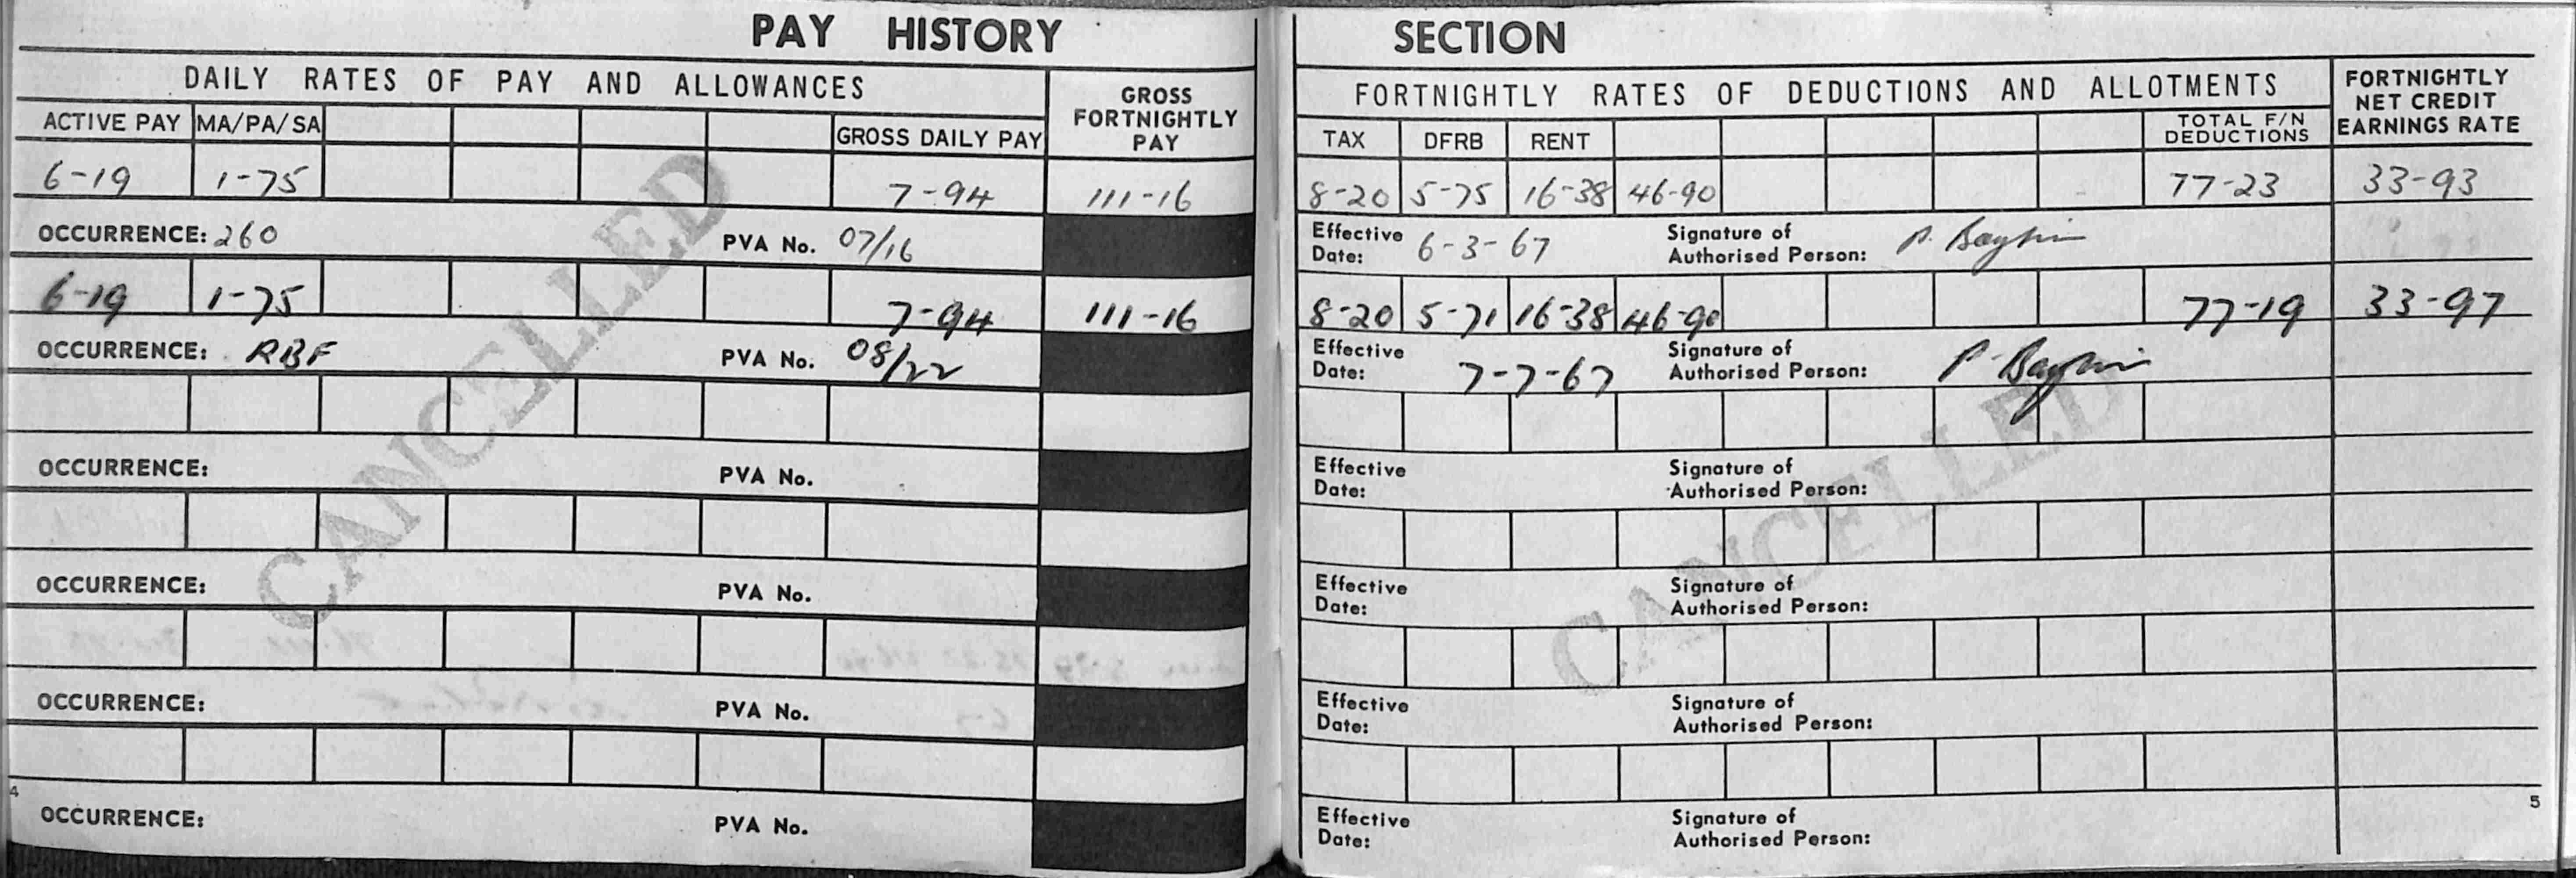 PAY HISTORY SECTION
DAILY RATES OF PAY AND ALLOWANCES
GROSS FORTNIGHTLY PAY
ACTIVE PAY MA/PA/SA GROSS DAILY PAY
6-19 1-75 7-94 111-16
OCCURRENCE: 260 PVA No. 07/16
6-19 1-75 7-94 111-16
OCCURRENCE: RBF PVA No. 08/22
OCCURRENCE: PVA No.
OCCURRENCE: PVA No.
OCCURRENCE: PVA No.
OCCURRENCE: PVA No.
CANCELLED
4
FORTNIGHTLY RATES OF DEDUCTIONS AND ALLOTMENTS
FORTNIGHTLY NET CREDIT EARNINGS RATE
TAX DFRB RENT TOTAL F/N DEDUCTIONS
8-20 5-75 16-38 46-90 77-23 33-93
Effective Date: 6-3-67 Signature of Authorised Person:
8-20 5-71 16-38 46-90 77-19 33-97
Effective Date: 7-7-67 Signature of Authorised Person:
Effective Date: Signature of Authorised Person:
Effective Date: Signature of Authorised Person:
Effective Date: Signature of Authorised Person:
Effective Date: Signature of Authorised Person:
CANCELLED
5